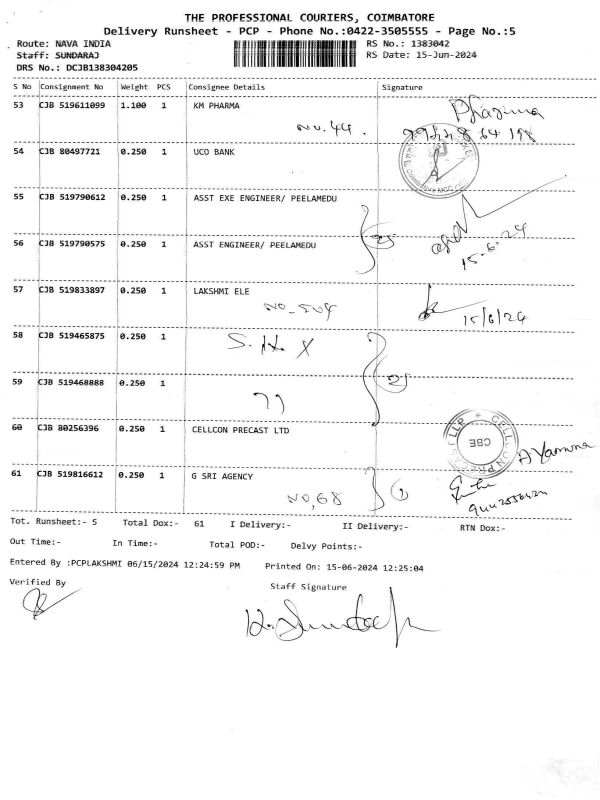 THE PROFESSIONAL COURIERS, COIMBATORE
Delivery Runsheet - PCP - Phone No.:0422-3505555 - Page No.:5
Route: NAVA INDIA RS No.: 1383042
Staff: SUNDARAJ RS Date: 15-Jun-2024
DRS No.: DCJB138304205
S No Consignment No Weight PCS Consignee Details Signature
53 CJB 519611099 1.100 1 KM PHARMA Pharma
No. 44.
54 CJB 80497721 0.250 1 UCO BANK
55 CJB 519790612 0.250 1 ASST EXE ENGINEER/ PEELAMEDU
56 CJB 519790575 0.250 1 ASST ENGINEER/ PEELAMEDU
15-6-24
57 CJB 519833897 0.250 1 LAKSHMI ELE
NO-504 15/6/24
58 CJB 519465875 0.250 1
59 CJB 519468888 0.250 1
60 CJB 80256396 0.250 1 CELLCON PRECAST LTD
CELLCON PRECAST LLP
CBE
A Yamuna
61 CJB 519816612 0.250 1 G SRI AGENCY
NO, 68
Tot. Runsheet:- 5 Total Dox:- 61 I Delivery:- II Delivery:- RTN Dox:-
Out Time:- In Time:- Total POD:- Delvy Points:-
Entered By :PCPLAKSHMI 06/15/2024 12:24:59 PM Printed On: 15-06-2024 12:25:04
Verified By Staff Signature